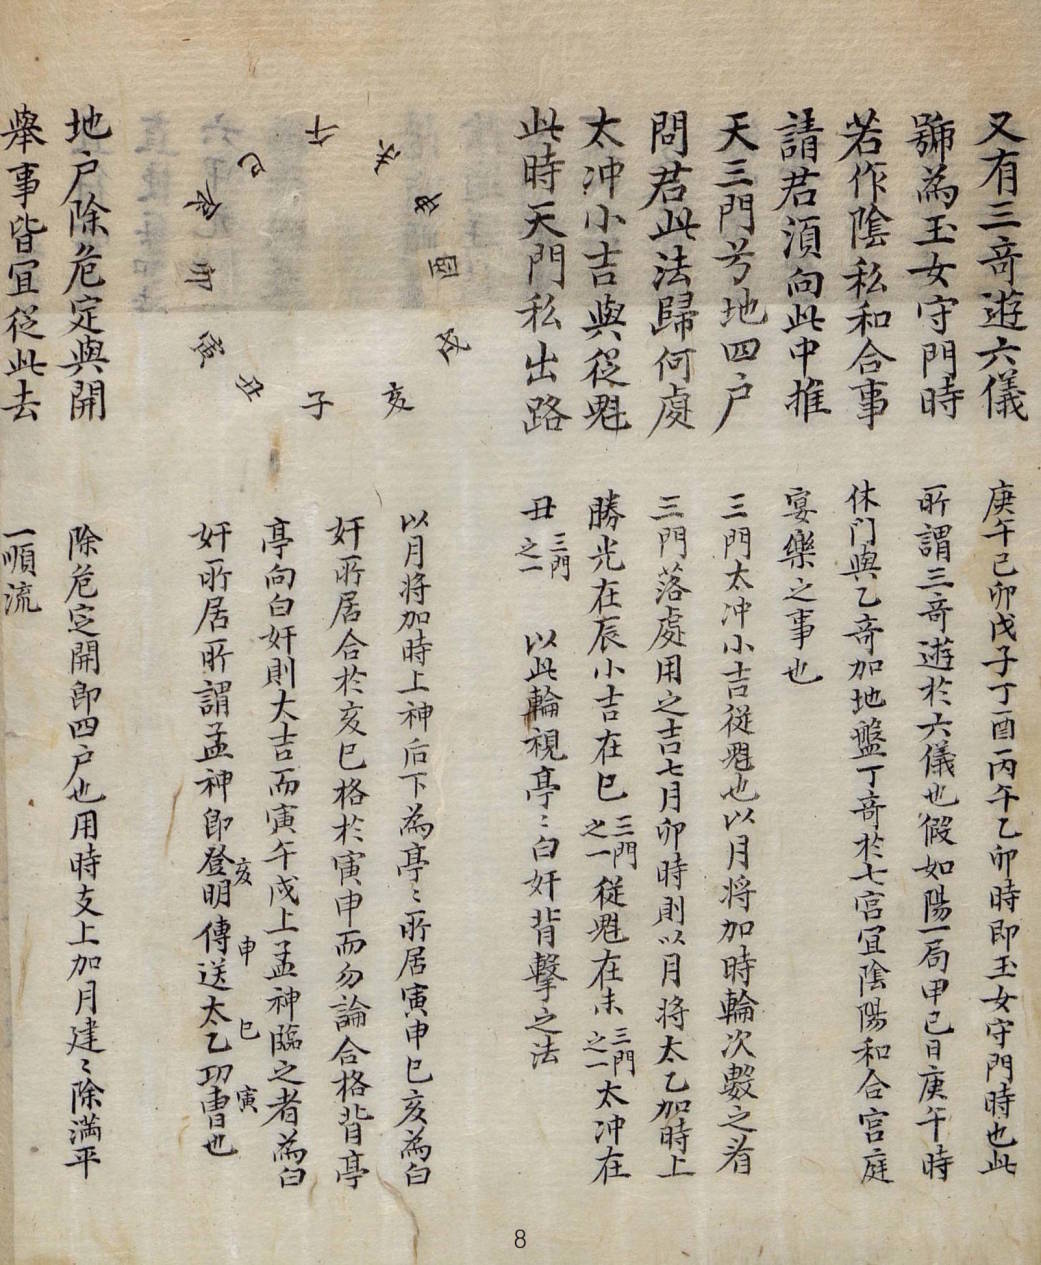 又有三竒遊六儀
號為玉女守門時
若作陰私和合事
請君須向此中推
天三門兮地四户
問君此法歸何處
太冲小吉與從魁
此時天門私出路
午
未
申
酉
戌
亥
子
丑
寅
卯
辰
巳
地户除危定與開
舉事皆宜從此去
庚午己卯戊子丁酉丙午乙卯時即玉女守門時也此
所謂三竒遊於六儀也假如陽一局甲己日庚午時
休门與乙竒加地盤丁竒於七宫宜陰陽和合宫庭
宴樂之事也
三門太冲小吉從魁也以月将加時輪次數之看
三門落處用之吉七月卯時則以月将太乙加時上
勝光在辰小吉在巳三門之一從魁在未三門之一太冲在
丑三門之一 以此輪視亭〻白奸背擊之法
以月将加時上神后下為亭〻所居寅申巳亥為白
奸所居合於亥巳格於寅申而勿論合格背亭
亭向白奸則大吉而寅午戌上孟神臨之者為白
奸所居所謂孟神即登明亥傳送申太乙巳功曹寅也
除危定開即四户也用時支上加月建〻除満平
一順流
8